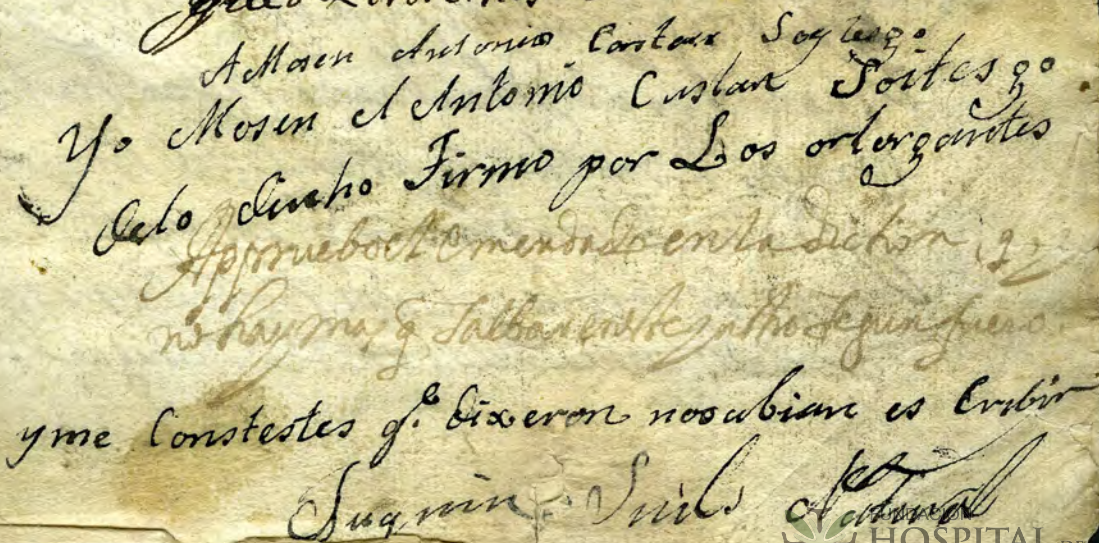 AMosen Antonio Castan Soy tesgo
Yo Mosen el Antonio Caslan Soitesgo
delo dicho Firmo por Los orlorgantes
Appruebo el Emendado en la diction
no hay mas q salbar en este acto segun fuero.
yme Constestes q.e dixeron nosabian es Cribir
Natural
FUNDACIÓN
HOSPITAL DE